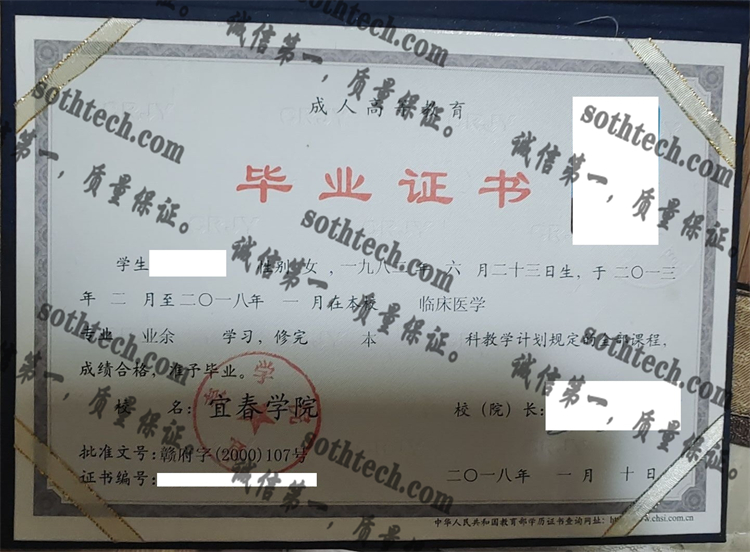 成人高等教育
毕业证书
学生 性别 女 , 一九八一年 六 月二十三日生, 于二〇一三
年 二 月至二〇一八年 一 月在本校 临床医学
专业 业余 学习, 修完 本 科教学计划规定的全部课程,
成绩合格, 准予毕业。
校 名: 宜春学院 校(院)长:
批准文号: 赣府字(2000)107号
证书编号: 二〇一八年 一 月 十 日
中华人民共和国教育部学历证书查询网址: http://www.chsi.com.cn
宜春学院
sothtech.com
诚信第一,质量保证。
sothtech.com
诚信第一,质量保证。
sothtech.com
诚信第一,质量保证。
sothtech.com
诚信第一,质量保证。
sothtech.com
诚信第一,质量保证。
sothtech.com
诚信第一,质量保证。
sothtech.com
诚信第一,质量保证。
sothtech.com
诚信第一,质量保证。